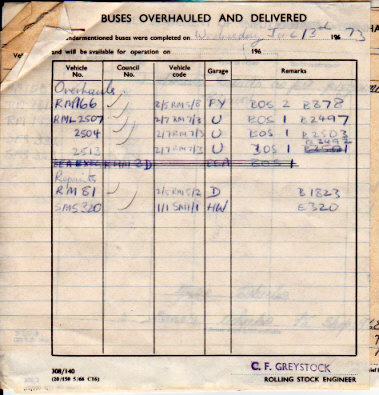 BUSES OVERHAULED AND DELIVERED
undermentioned buses were completed on Wednesday June 13th 196 73
Vehicle and will be available for operation on 196
Vehicle No. Council No. Vehicle code Garage Remarks
Overhauls
RM766 2/5 RM5/8 FY BOS 2 B878
RML2507 2/7 RM7/3 U BOS 1 B2497
2504 2/7 RM7/3 U BOS 1 B2503
2513 2/7 RM7/3 U BOS 1 B2492
Repaints
RM81 2/5 RM5/2 D B1823
SMS320 1/1 SM1/1 HW B320
308/140
(20/150 5/66 C16)
C. F. GREYSTOCK
ROLLING STOCK ENGINEER